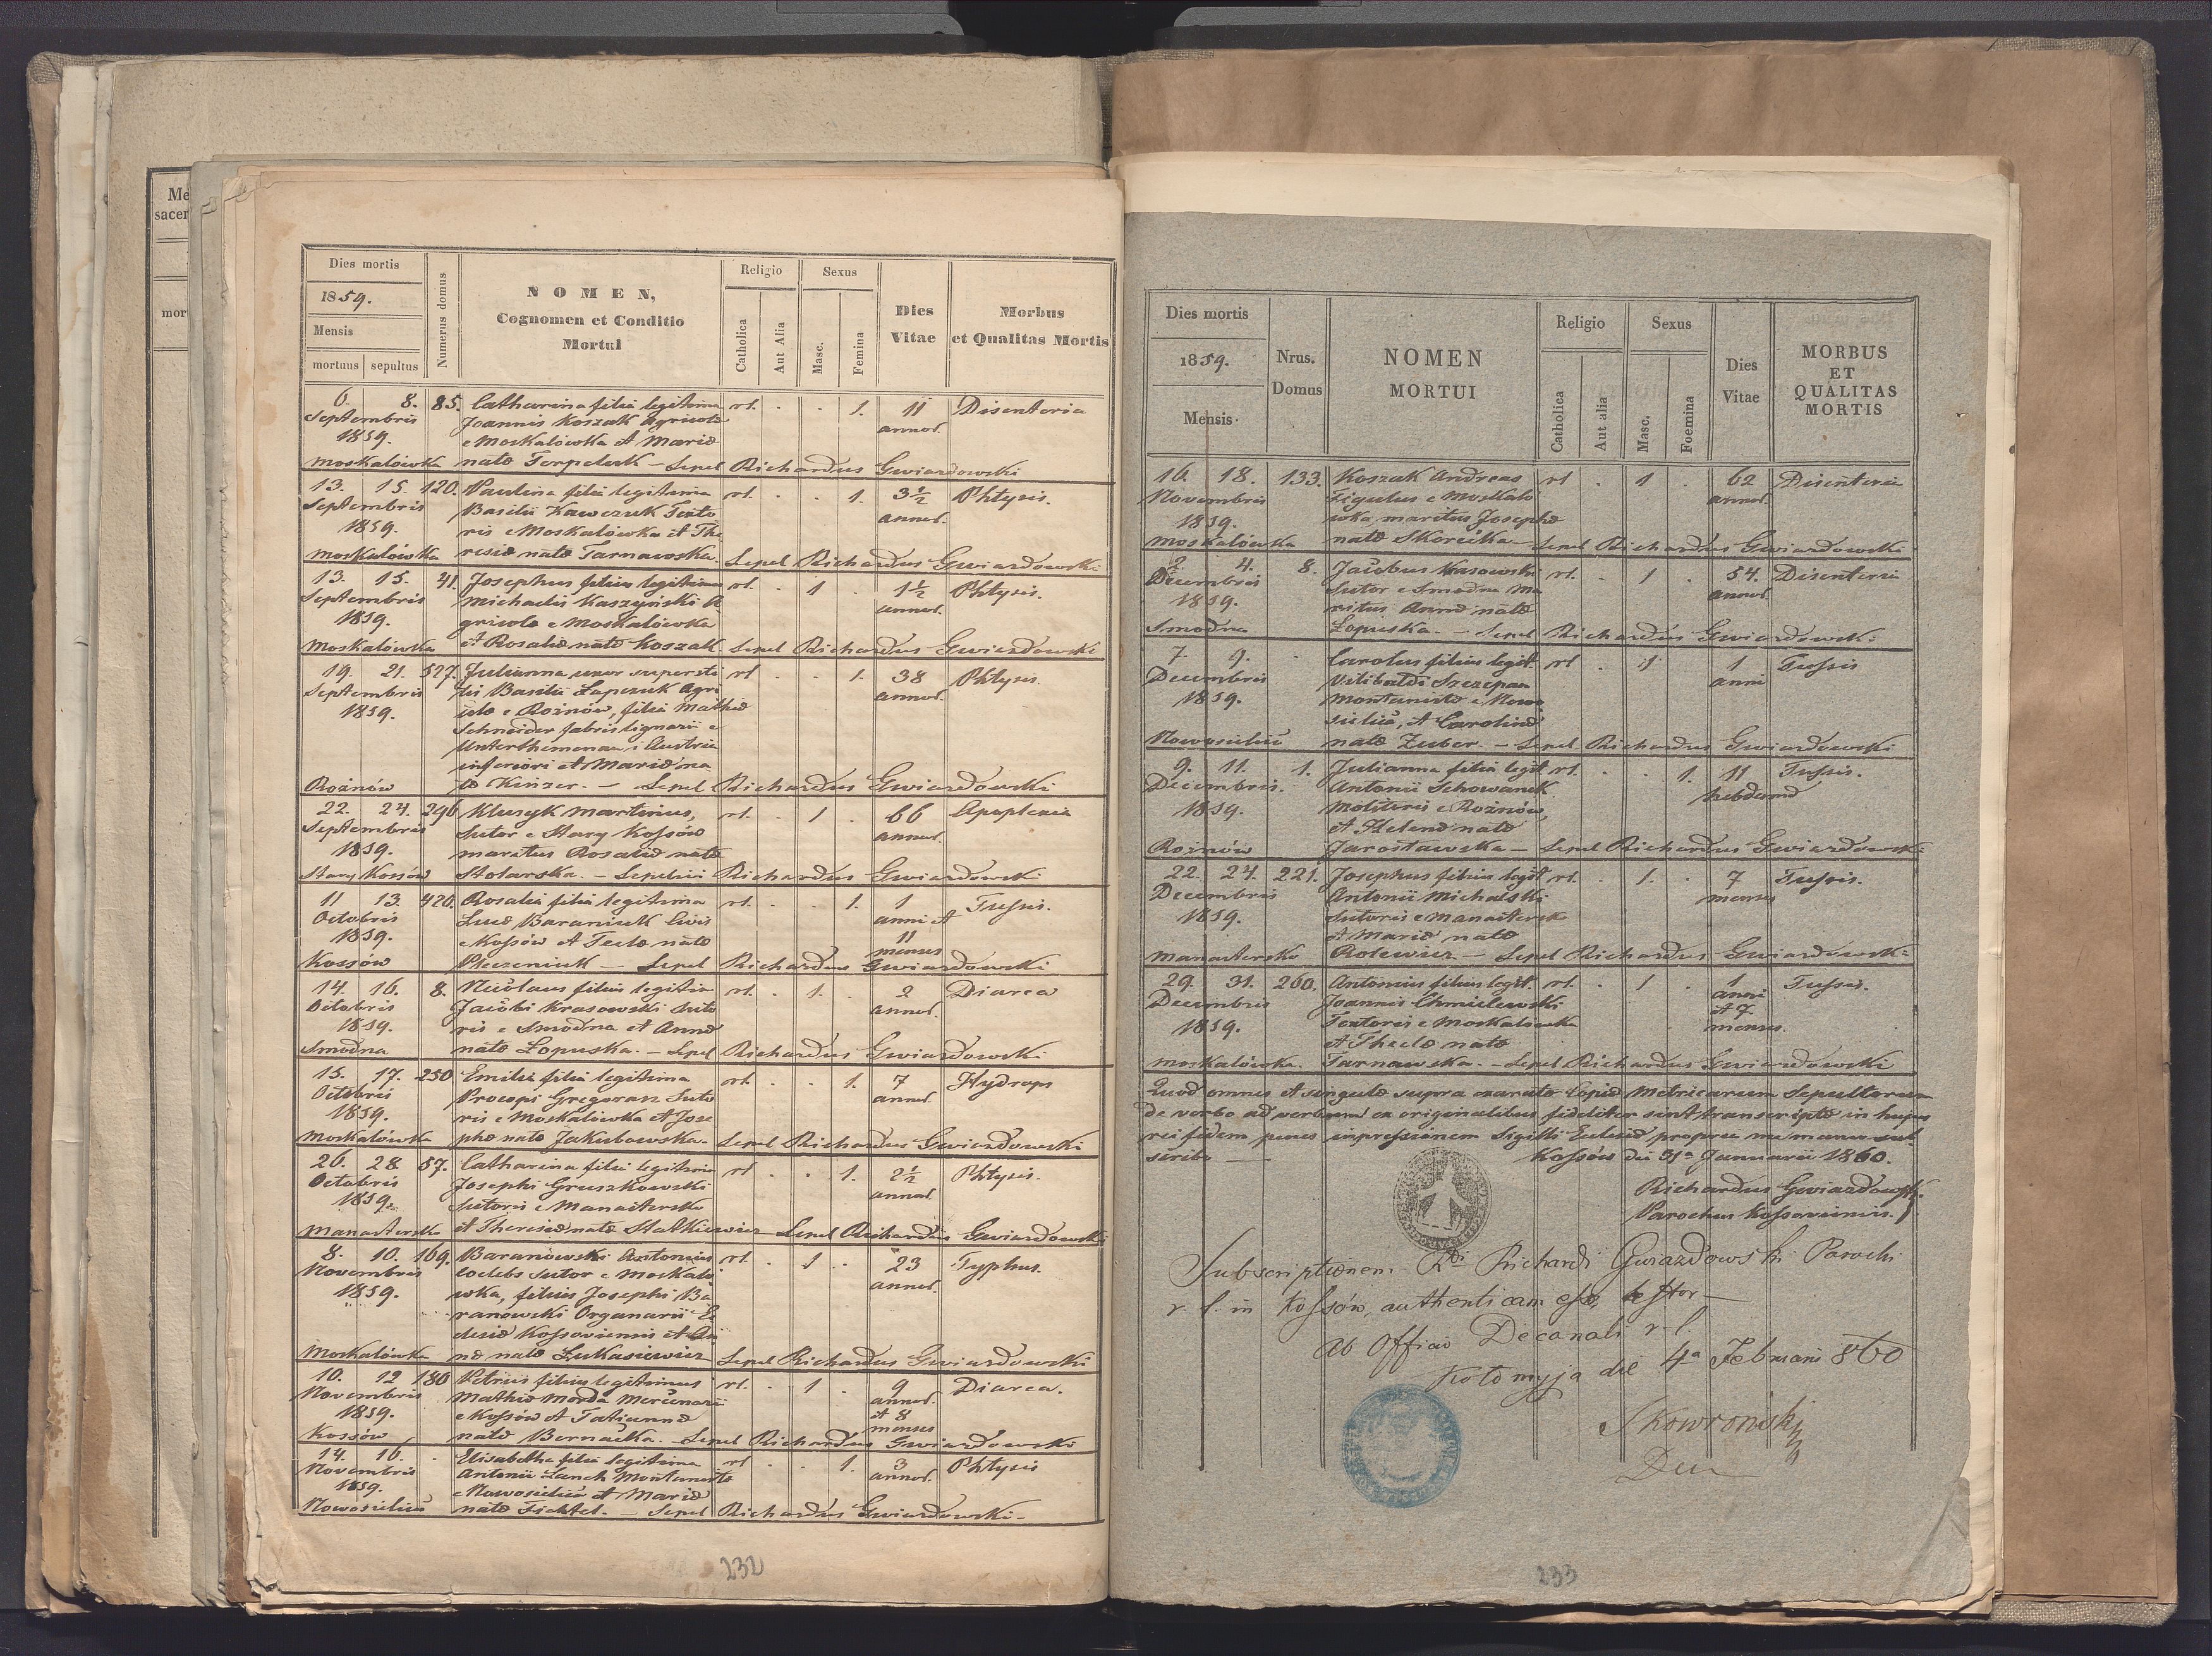 Me
sacer
mor
Dies mortis
1859.
Mensis
mortuus sepultus
Numerus domus
NOMEN,
Cognomen et Conditio
Mortui
Religio
Catholica
Aut Alia
Sexus
Masc.
Femina
Dies
Vitae
Morbus
et Qualitas Mortis
6. 8. 85. Catharina filia legitima rl. . . 1. 11 Disenteria
Septembris Joannis Koszak Agricola annor.
1859. e Moskalówka et Maria
Moskalówka nata Terpeluk – Sepel Richardus Gwiazdowski
13. 15. 120. Paulina filia legitima rl. . . 1. 3½ Phtysis.
Septembris Basilii Kawczuk Texto annor.
1859. ris e Moskalówka et The
Moskalówka resia nata Tarnawska. Sepel Richardus Gwiazdowski
13. 15. 41. Josephus filius legitimus rl. . 1 . 1½ Phtysis.
Septembris Michaelis Kaszyński A annor.
1859. gricola e Moskalówka
Moskalówka et Rosalia nata Koszak. Sepel Richardus Gwiazdowski
19. 21. 527. Julianna, uxor supersti rl . . 1. 38 Phtysis.
Septembris tis Basilii Łapczuk Agri annor.
1859. cola e Rożnów, filia Mathia
Schneider fabris lignarii e
Unterthemenau, i Austria
inferiori et Maria na
Rożnów ta Kinzer. – Sepel Richardus Gwiazdowski
22. 24. 296 Klusyk Martinus, rl. . 1 . 66 Apoplexia
Septembris Sutor e Stary Kossów annor.
1859. maritus Rosalia nata
Stary Kossów Stolarska. – Sepelivi Richardus Gwiazdowski
11 13. 420. Rosalia filia legitima rl. . . 1. 1 Tussis.
Octobris Luca Baraniuk Civis anni et
1859. e Kossów et Tecla nata 11
menses
Kossów Pleczeniuk – Sepel Richardus Gwiazdowski
14. 16. 8. Nicolaus filius legitim rl. . 1. . 2 Diarea
Octobris Jacobi Krasowski Suto annor.
1859. ris e Smodna et Anna
Smodna nata Łopuska. – Sepel Richardus Gwiazdowski
15. 17. 250 Emilia filia legitima rl. . . 1. 7 Hydrops
Octobris Procopi Gregoran Suto annor.
1859. ris e Moskalówka et Jose
Moskalówka pha nata Jakubowska. Sepel Richardus Gwiazdowski
26. 28. 57. Catharina filia legitima rl . . 1. 2½ Phtysis.
Octobris Josephi Gruszkowski annor.
1859. Sutoris e Manastersko
Manastersko et Theresia nata Statkiewicz Sepel Richardus Gwiazdowski
8. 10. 169. Baranowski Antonius rl. . 1 . 23 Typhus.
Novembris coelebs Sutor e Moskaló annor.
1859. wka, filius Josephi Ba
ranowski Organarii E
clesia Kossoviensis et An
Moskalówka na nata Łukasiewicz Sepel Richardus Gwiazdowski
10. 12 180 Petrus filius legitimus rl. . 1 . 9 Diarea.
Novembris Mathia Morda Mercenarii annor.
1859. e Kossów et Tatianna et 8
menses
Kossów nata Bernacka. – Sepel Richardus Gwiazdowski
14. 16. . Elisabetha filia legitima rl . . 1. 3 Phtysis
Novembris Antonii Lanch Montanista annor.
1859. e Nowosielica et Maria
Nowosielica nata Fichtel. – Sepel Richardus Gwiazdowski –
232
Dies mortis
1859.
Mensis
Nrus.
Domus
NOMEN
MORTUI
Religio
Catholica
Aut alia
Sexus
Masc.
Foemina
Dies
Vitae
MORBUS
ET
QUALITAS
MORTIS
16. 18. 133. Koszak Andreas rl . 1 . 62 Disenteria
Novembris Figulus e Moskaló annor.
1859. wka, maritus Josepha
Moskalówka nata Skorička – Sepel Richardus Gwiazdowski
2. 4. 8. Jacobus Krasowski rl. . 1 . 54. Disenteria
Decembris Sutor e Smodna Ma annor.
1859. ritus Anna nata
Smodna Łopuska. – Sepel Richardus Gwiazdowski
7. 9. . Carolus filius legit. rl . 1 1 Tussis
Decembris Vilibaldi Szczepan anni
1859. Montanista e Nowo
sielica, et Carolina
Nowosielica nata Zuber. – Sepel Richardus Gwiazdowski
9. 11. 1. Julianna filia legit rl. . . 1. 11 Tussis.
Decembris. Antonii Schowanek hebdomad
1859. Molitoris e Rożnów,
et Helena nata
Rożnów Jarosławska – Sepel Richardus Gwiazdowski
22. 24. 221. Josephus filius legit rl. . 1. . 7 Tussis.
Decembris Antonii Michalski menses
1859. Sutoris e Manastersko
et Maria nata
Manastersko Rolewicz – Sepel Richardus Gwiazdowski
29. 31. 260. Antonius filius legit. rl. . 1 . 1 Tussis.
Decembris Joannis Chmielewski anni
1859. Textoris e Moskalówka et 7
et Thecla nata menses.
Moskalówka. Tarnawska. – Sepel Richardus Gwiazdowski
Quod omnes et singula supra exarata Copia Metricarum Sepultorum
de verbo ad verbum ex originalibus fideliter sint transcripta in hujus
rei fidem penes impressionem Sigilli Ecclesia propria me manu sub
scribo –
Kossów die 31a Januarii 1860.
Richardus Gwiazdowski
Parochus Kossoviensis.
Subscriptionem Rdi Richardi Gwiazdowski Parochi
r. l. in Kossów, authenticam esse, testor –
Ab Officio Decanali r. l.
Kołomyja die 4a Februarii 860
Skowroński
Dec
233